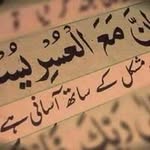 اِنَّ مَعَ الْعُسْرِ يُسْ
مشکل کے ساتھ آسانی ہے